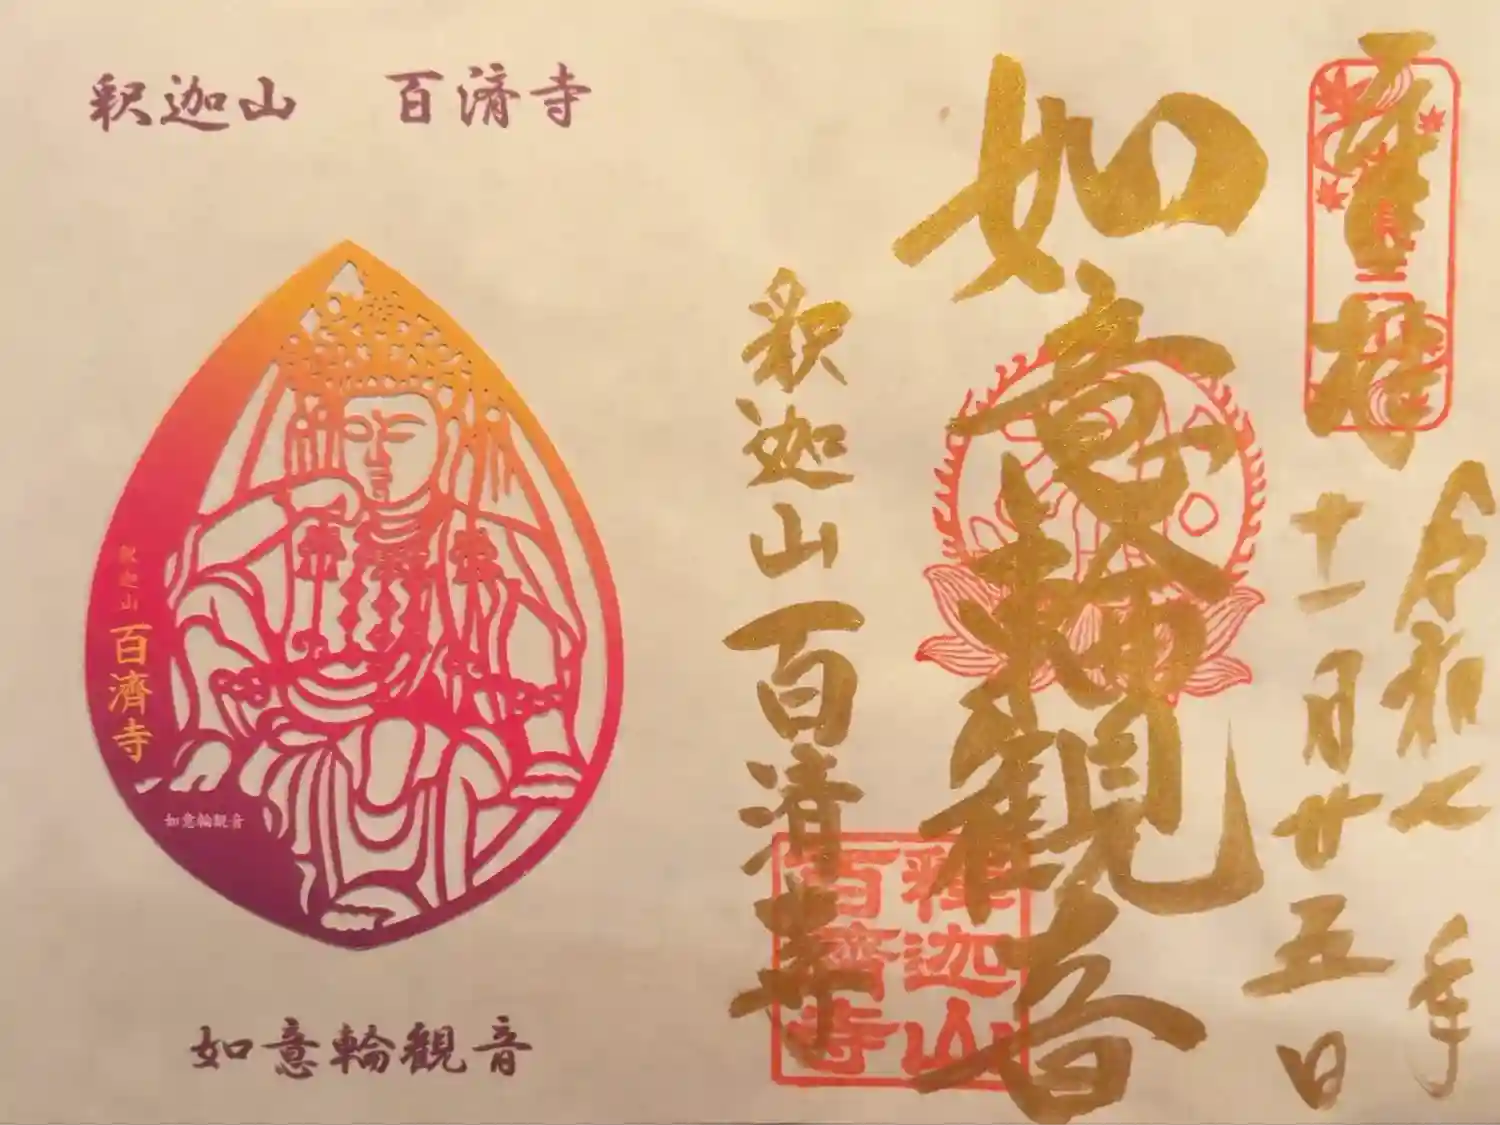 釈迦山 百済寺
釈迦山
百濟寺
如意輪観音
如意輪観音
奉拝
令和七年
十一月廿五日
如意輪觀音
釈迦山百済寺
釋迦山
百濟寺